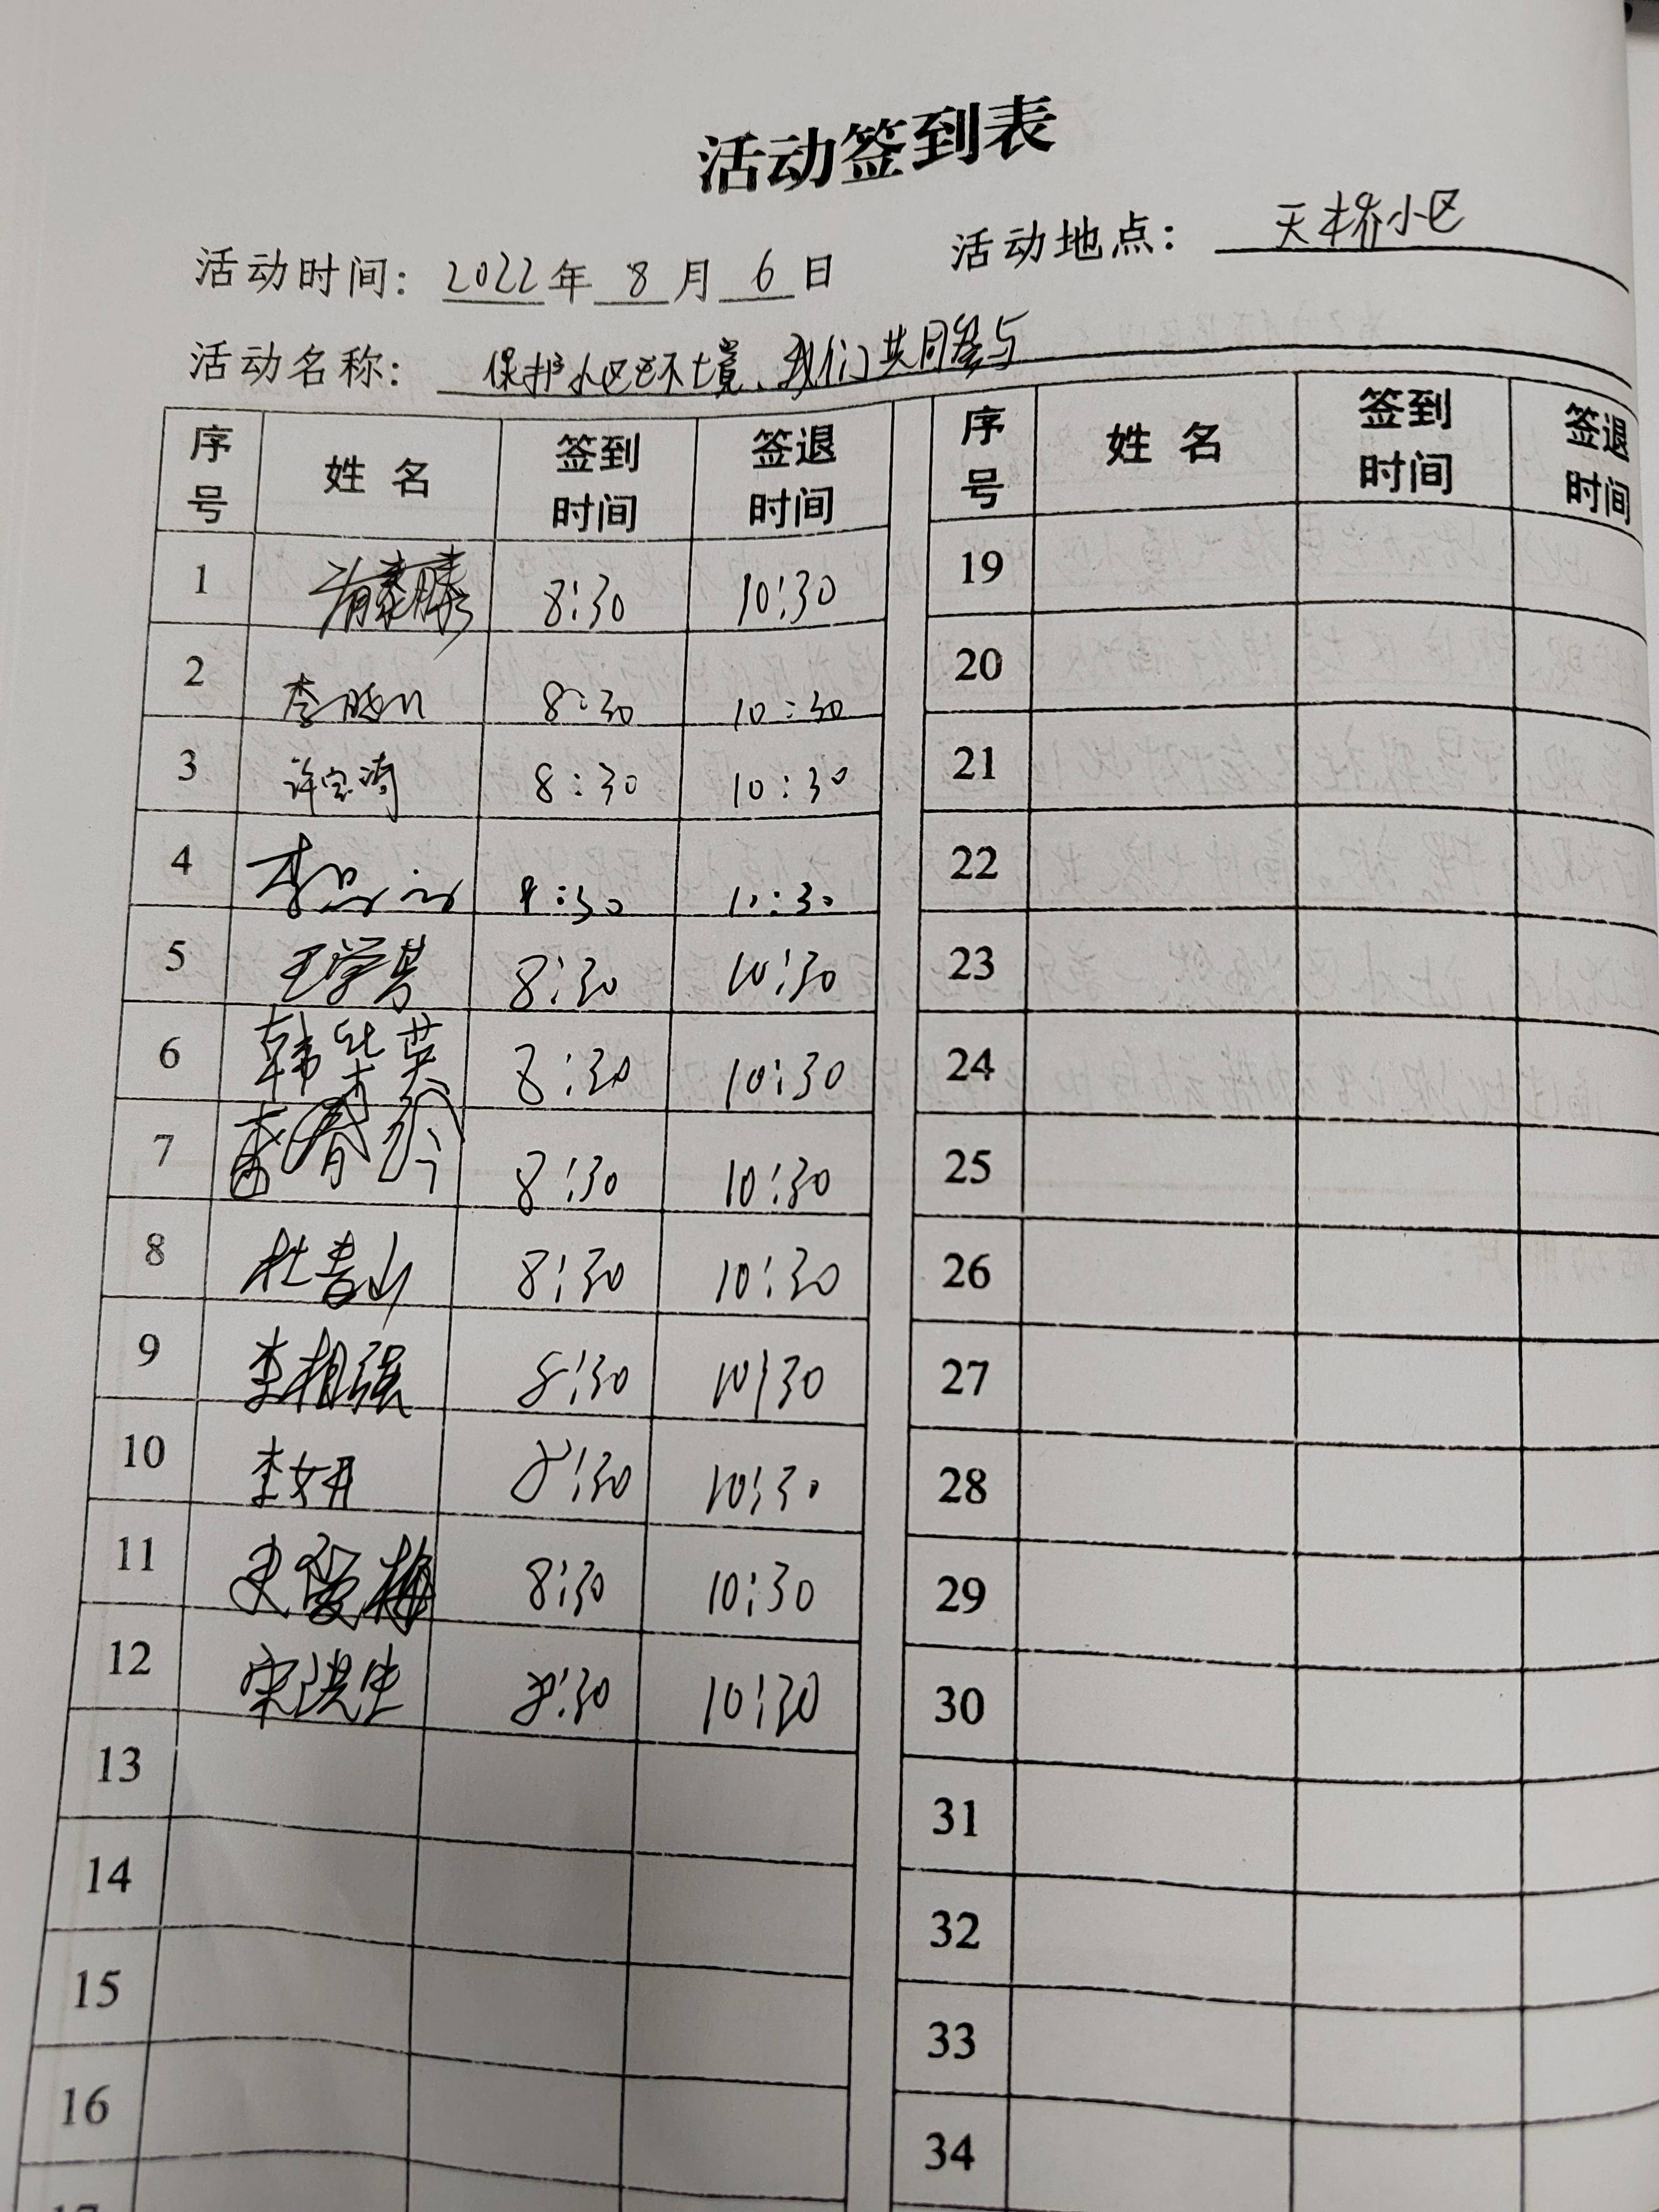 活动签到表
活动时间：2022年8月6日 活动地点：天桥小区
活动名称：保护小区环境、我们共同参与
序号 姓名 签到时间 签退时间 序号 姓名 签到时间 签退时间
1 8:30 10:30 19
2 李 8:30 10:30 20
3 许宝 8:30 10:30 21
4 李 8:30 10:30 22
5 王学芳 8:30 10:30 23
6 韩华英 8:30 10:30 24
7 8:30 10:30 25
8 杜青山 8:30 10:30 26
9 李相强 8:30 10:30 27
10 李妍 8:30 10:30 28
11 梅 8:30 10:30 29
12 宋洪生 8:30 10:30 30
13 31
14 32
15 33
16 34
17